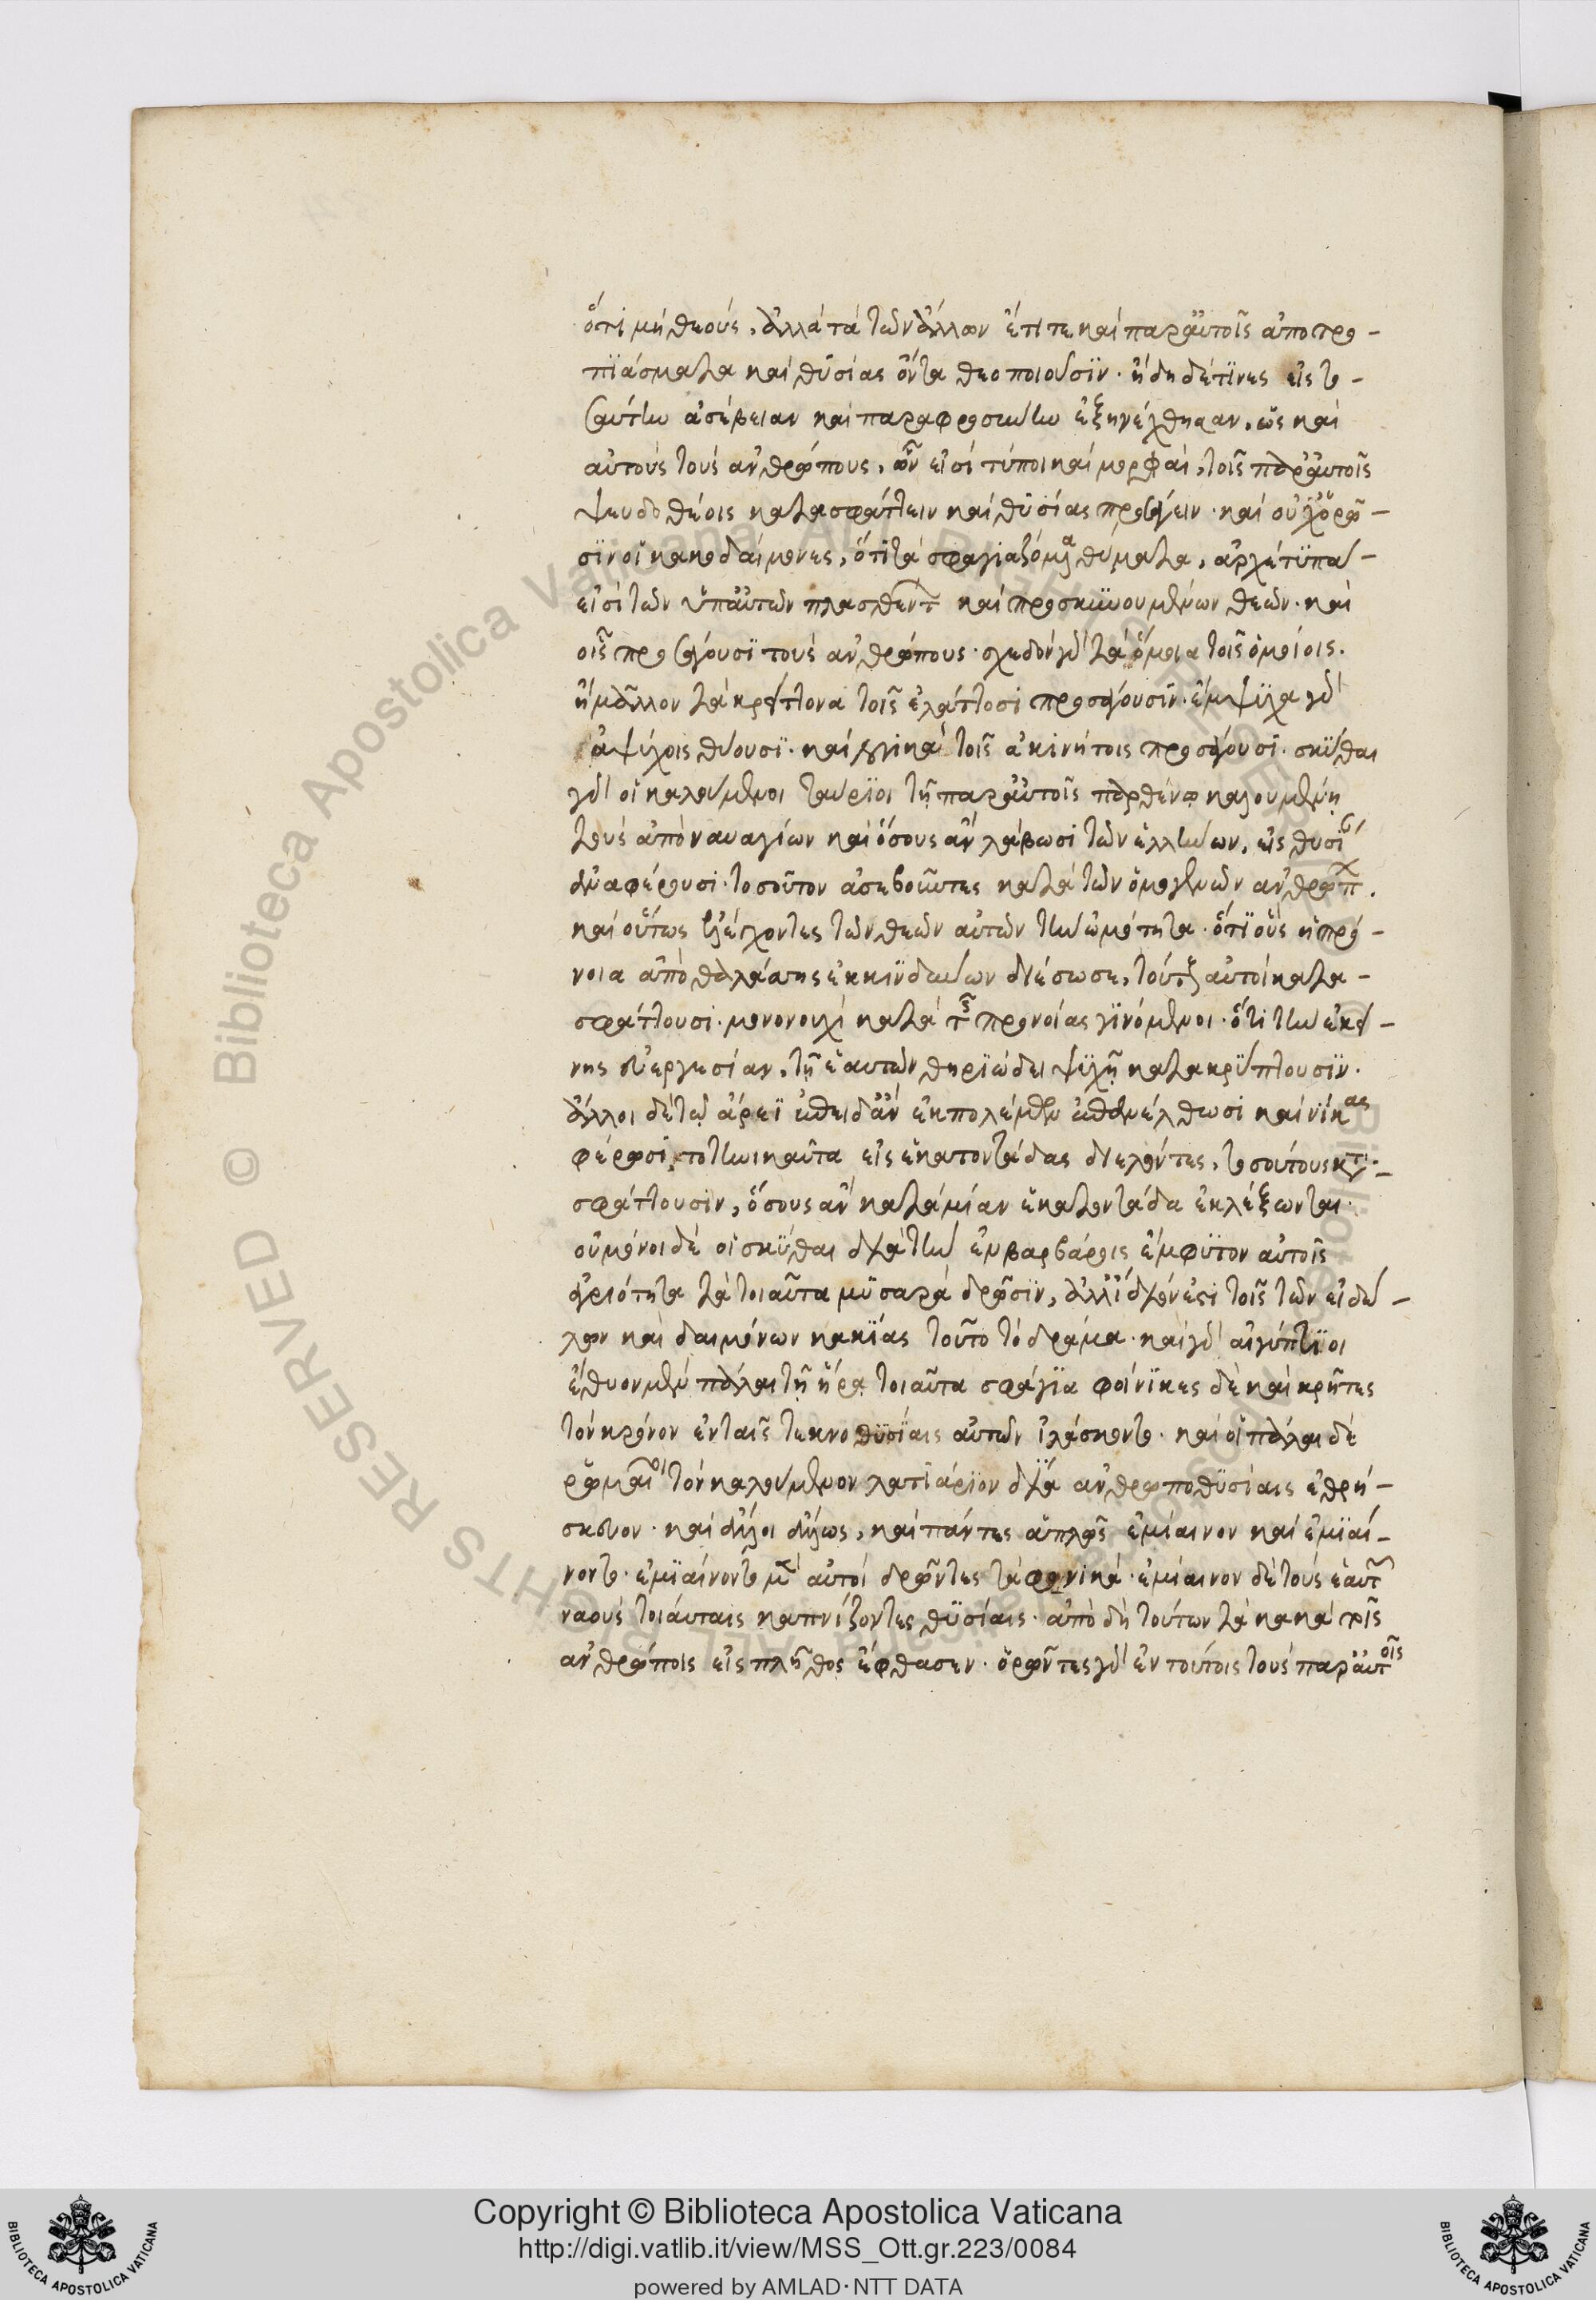 ὅτι μὴ θεοὺς, ἀλλὰ τὰ τῶν ἄλλων ἔτι τε καὶ παρ' αὐτοῖς ἀποτρο-
πϊάσματα καὶ θυσίας ὄντα θεοποιοῦσϊν. ἤδη δέ τϊνες εἰς το-
σαύτην ἀσέβειαν καὶ παραφροσύνην ἐξηνέχθησαν, ὡς καὶ
αὐτοὺς τοὺς ἀνθρώπους, ὧν εἰσὶ τύποι καὶ μορφαὶ, τοῖς παρ' αὐτοῖς
ψευδοθέοις κατασφάττειν καὶ θυσίας προσάγειν. καὶ οὐχ ὁρῶ-
σϊν οἱ κακοδαίμονες, ὅτι τὰ σφαγιαζόμενα θύματα, ἀρχέτϋπά
εἰσι τῶν ὑπ' αὐτῶν πλασθέντ καὶ προσκϋνουμένων θεῶν. καὶ
οἷς προσάγουσϊ τοὺς ἀνθρώπους. σχεδὸν γὰρ τὰ ὅμοια τοῖς ὁμοίοις.
ἢ μᾶλλον τὰ κρείττονα τοῖς ἐλάττοσι προσάγουσϊν. ἔμψϋχα γὰρ
ἀψύχοις θύουσϊ. καὶ λογικὰ τοῖς ἀκινήτοις προσάγουσϊ. σκύθαι
γὰρ οἱ καλούμενοι ταύρϊοι τῇ παρ' αὐτοῖς παρθένῳ καλουμένῃ
τοὺς ἀπὸ ναυαγίων καὶ ὅσους ἂν λάβωσι τῶν ἑλλήνων, εἰς θυσί
ἀναφέρουσι. τοσοῦτον ἀσεβοῦντες κατὰ τῶν ὁμογενῶν ἀνθρώπ.
καὶ οὕτως ἐλέγχοντες τῶν θεῶν αὐτῶν τὴν ὠμότητα. ὅτϊ οὓς ἡ πρό-
νοια ἀπὸ θαλάσσης ἐκ κινδύνων διέσωσε, τούτους αὐτοὶ κατα-
σφάττουσι. μονονουχὶ κατὰ τῆς προνοίας γϊνόμενοι. ὅτι τὴν ἐκεί-
νης εὐεργεσίαν, τῇ ἑαυτῶν θηρϊώδει ψϋχῇ κατακρύπτουσϊν.
ἄλλοι δὲ τῷ ἄρεϊ ἐπειδὰν ἐκ πολέμων ἐπανέλθωσι καὶ νίκας
φέρωσϊ, τὸ τηνικαῦτα εἰς ἑκατοντάδας διελόντες, τοσούτους κατα-
σφάττουσιν, ὅσους ἂν κατὰ μίαν ἑκατοντάδα ἐκλέξωνται.
οὐ μόνοι δὲ οἱ σκύθαι διὰ τὴν ἐν βαρβάροις ἔμφϋτον αὐτοῖς
ἀγριότητα τὰ τοιαῦτα μϋσαρὰ δρῶσϊν, ἀλλ' ἴδιόν ἐστι τοῖς τῶν εἰδώ-
λων καὶ δαιμόνων κακΐας τοῦτο τὸ δράμα. καὶ γὰρ αἰγύπτϊοι
ἔθυον μὲν πάλαι τῇ ἥρᾳ τοιαῦτα σφάγϊα φοίνϊκες δὲ καὶ κρῆτες
τὸν κρόνον ἐν ταῖς τεκνοθϋσίαις αὐτῶν ἱλάσκοντο. καὶ οἱ πάλαι δὲ
ῥωμαῖοι τὸν καλούμενον λατιάρϊον δία ἀνθρωποθϋσίαις ἐθρή-
σκευον. καὶ ἄλλοι ἄλλως, καὶ πάντες ἁπλῶς ἐμίαινον καὶ ἐμϊαί-
νοντο. ἐμϊαίνοντο μὲν αὐτοὶ δρῶντες τὰ φονικά. ἐμίαινον δὲ τοὺς ἑαυτ
ναοὺς τοιαύταις καπνίζοντες θϋσίαις. ἀπὸ δὴ τούτων τὰ κακὰ τοῖς
ἀνθρώποις εἰς πλῆθος ἔφθασεν. ὁρῶντες γὰρ ἐν τούτοις τοὺς παρ' αὐτοῖς
Copyright © Biblioteca Apostolica Vaticana
http://digi.vatlib.it/view/MSS_Ott.gr.223/0084
powered by AMLAD·NTT DATA